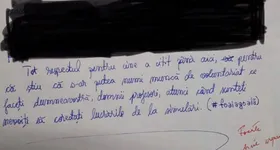 Tot respectul pentru cine a citit până aici, pentru
că știu că s-ar putea numi muncă de voluntariat ce
faceți dumneavoastră, domnii profesori, atunci când sunteți
nevoiți să corectați lucrările de la simulări.
Foarte